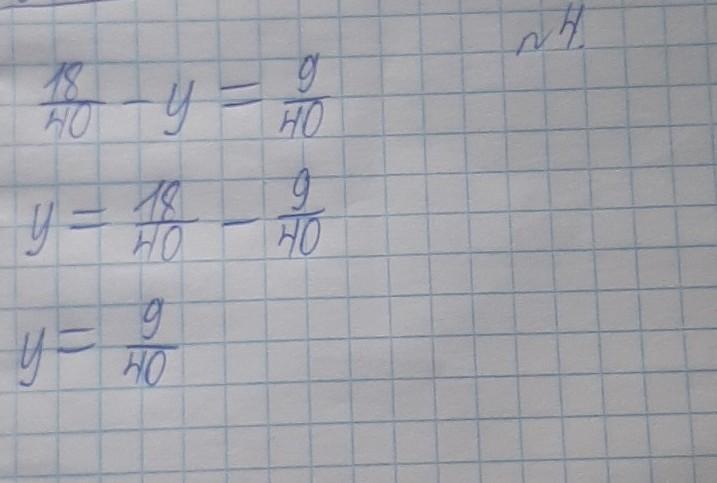 N4.
18/40 - y = 9/40
y = 18/40 - 9/40
y = 9/40